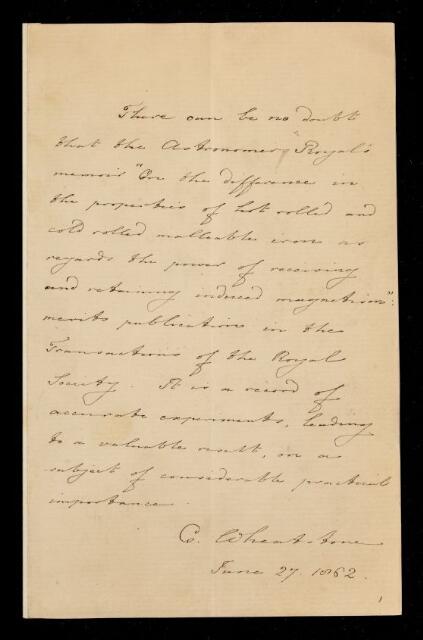 There can be no doubt
that the Astronomer Royal's
memoir "On the difference in
the properties of hot rolled and
cold rolled malleable iron as
regards the power of receiving
and retaining induced magnetism":
merits publication in the
Transactions of the Royal
Society. It is a record of
accurate experiments, leading
to a valuable result, on a
subject of considerable practical
importance.
C. Wheatstone
June 27. 1862.
1